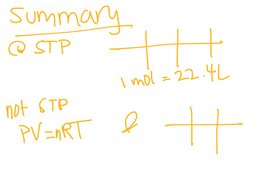 Summary
@ STP
1 mol = 22.4L
not STP
PV=nRT &